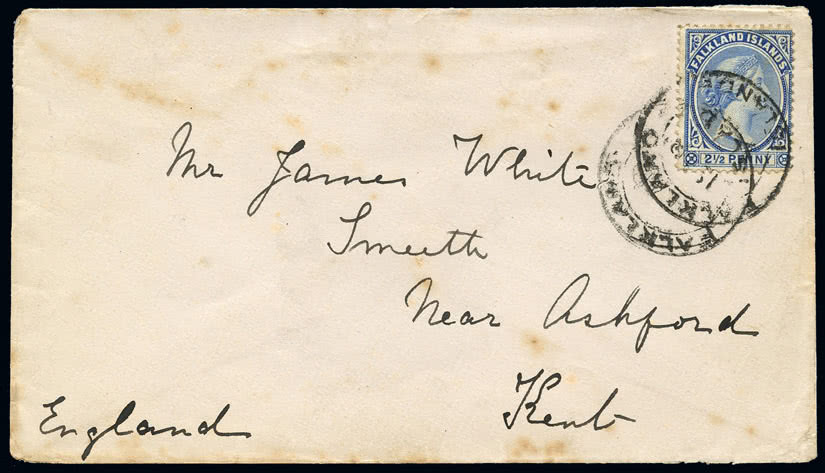 FALKLAND ISLANDS
2½ PENNY
FALKLAND
FALKLAND
Mr James White
Smeeth
Near Ashford
Kent
England